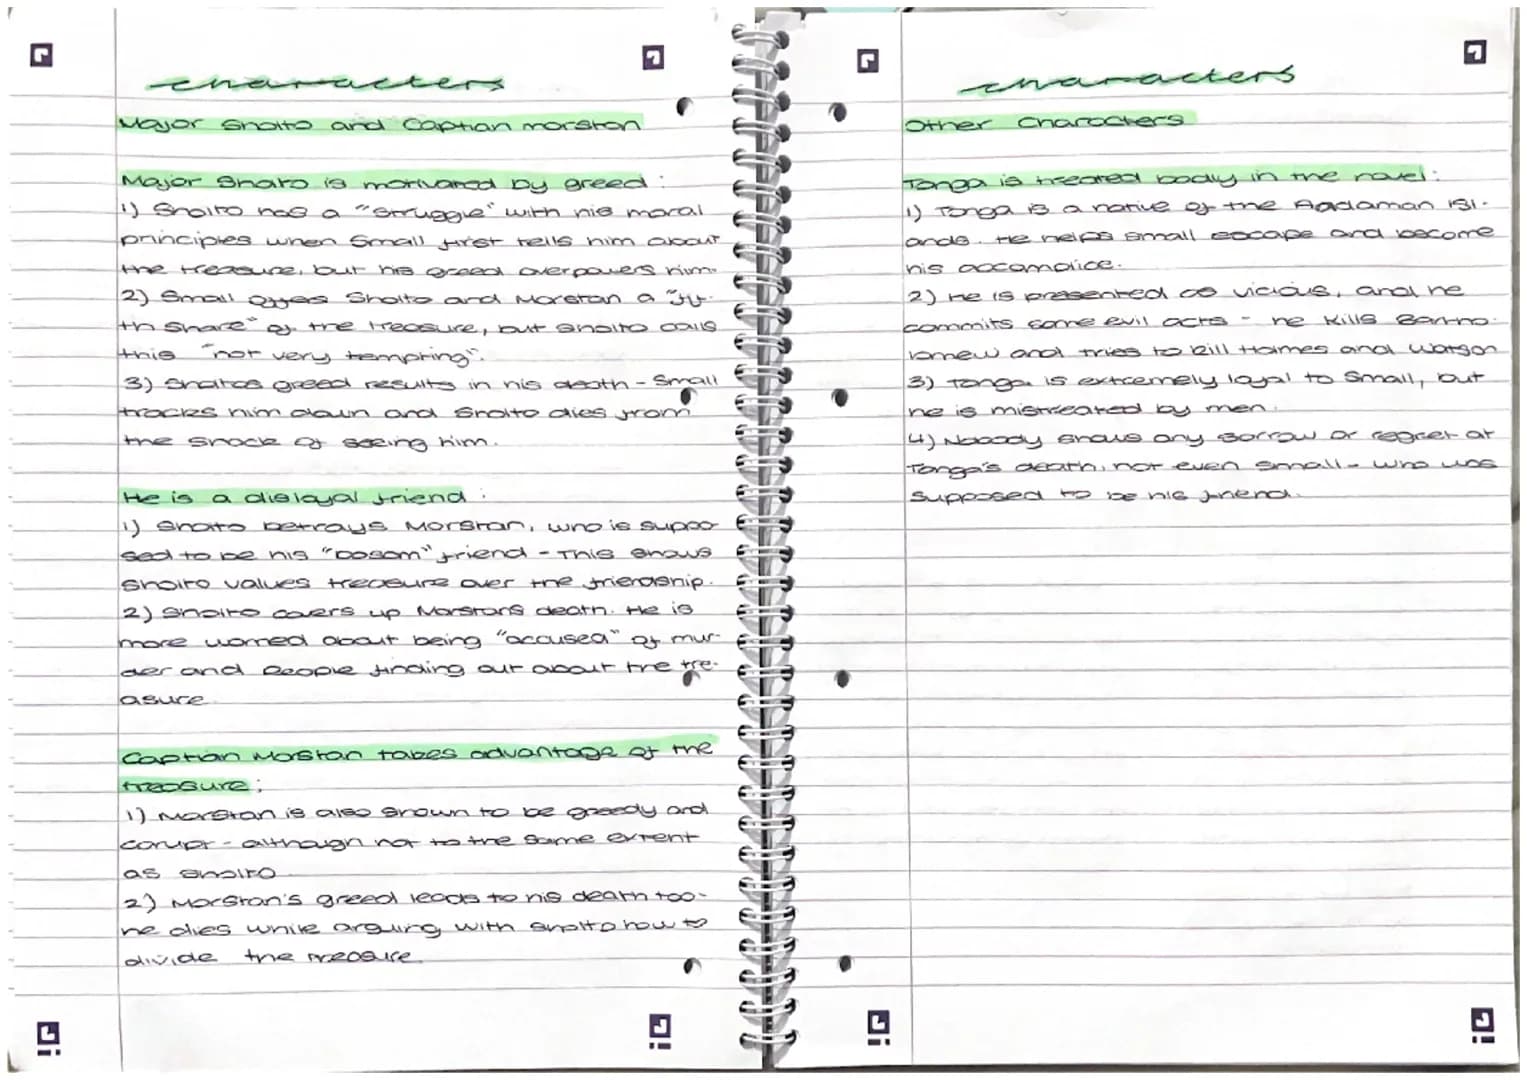 characters
Major Sholto and Captian morstan
Major Sholto is motivated by greed:
1) Sholto has a "struggle" with his moral
principles when Small first tells him about
the treasure, but his greed overpowers him.
2) Small offers Sholto and Morstan a "fif-
th share" of the treasure, but Sholto calls
this "not very tempting".
3) Sholtos greed results in his death - Small
tracks him down and Sholto dies from
the shock of seeing him.
He is a disloyal friend:
1) Sholto betrays Morstan, who is suppo-
sed to be his "bosom" friend - This shows
Sholto values treasure over the friendship.
2) Sholto covers up Morstans death. He is
more worried about being "accused" of mur-
der and people finding out about the tre-
asure.
Captian Morstan takes advantage of the
treasure:
1) Morstan is also shown to be greedy and
corupt - although not to the same extent
as Sholto
2) Morstan's greed leads to his death too-
he dies while arguing with Sholto how to
divide the treasure.
characters
Other Characters
Tonga is treated badly in the novel:
1) Tonga is a native of the Andaman Isl-
ands. He helps Small escape and become
his accomplice.
2) He is presented as vicious, and he
commits some evil acts - he kills Bartho-
lomew and tries to kill Holmes and Watson
3) Tonga is extremely loyal to Small, but
he is mistreated by men.
4) Nobody shows any sorrow or regret at
Tonga's death, not even Small - who was
supposed to be his friend.